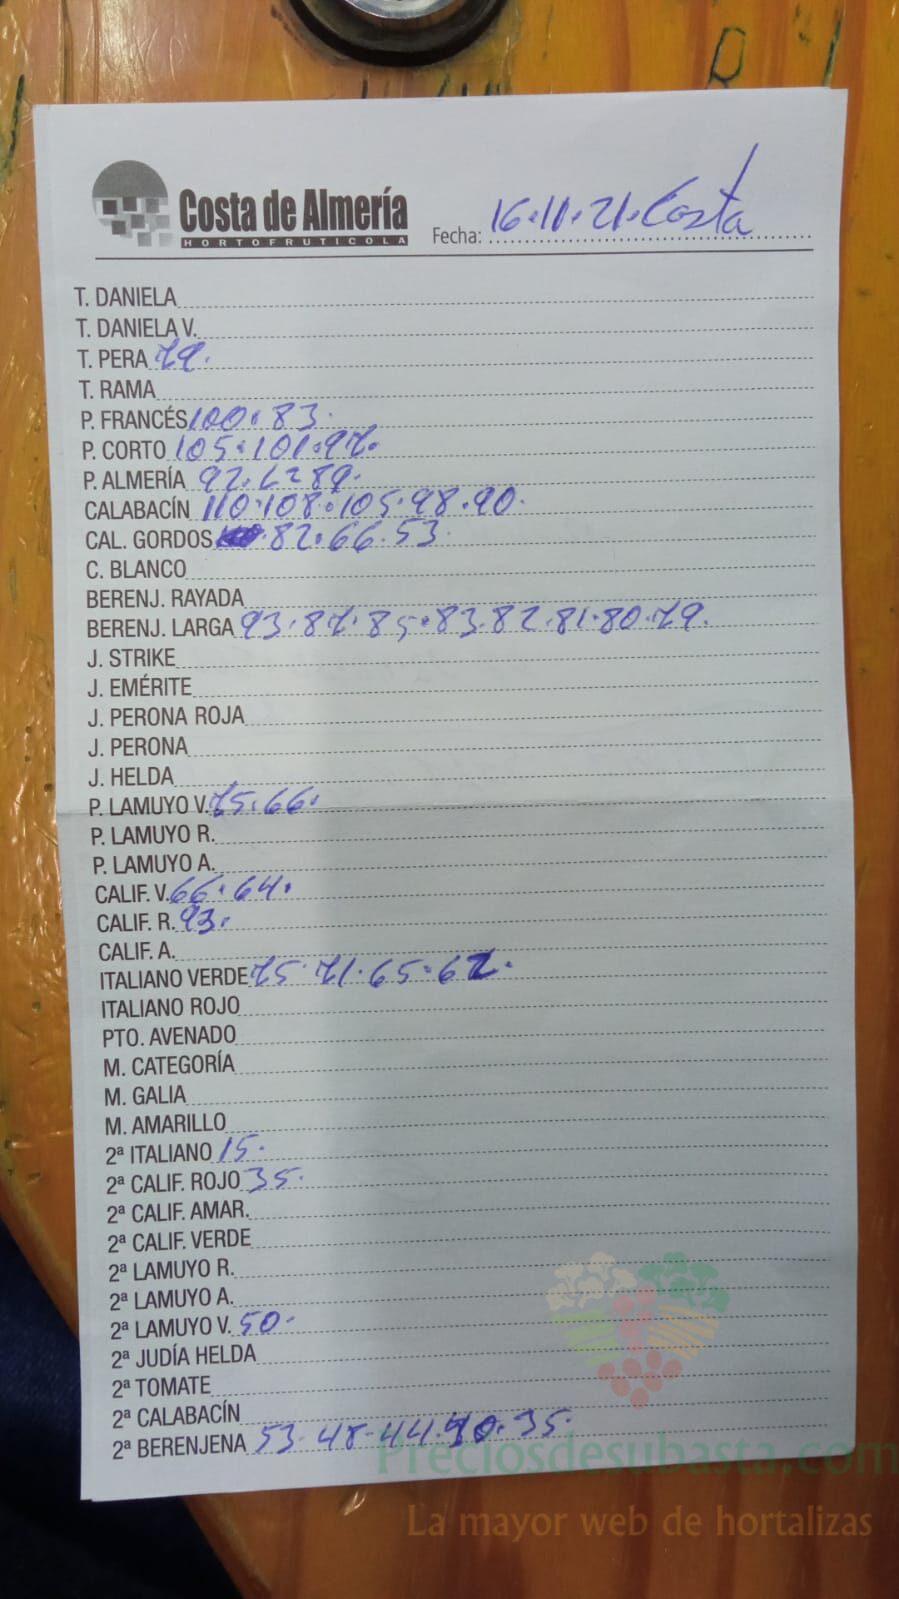 Costa de Almería
HORTOFRUTICOLA
Fecha: 16.11.21. Costa
T. DANIELA
T. DANIELA V.
T. PERA 79.
T. RAMA
P. FRANCÉS 100. 83.
P. CORTO 105. 101. 97.
P. ALMERÍA 92. 89.
CALABACÍN 110. 108. 105. 98. 90.
CAL. GORDOS 82. 66. 53.
C. BLANCO
BERENJ. RAYADA
BERENJ. LARGA 93. 87. 85. 83. 82. 81. 80. 79.
J. STRIKE
J. EMÉRITE
J. PERONA ROJA
J. PERONA
J. HELDA
P. LAMUYO V. 75. 66.
P. LAMUYO R.
P. LAMUYO A.
CALIF. V. 66. 64.
CALIF. R. 93.
CALIF. A.
ITALIANO VERDE 75. 71. 65. 62.
ITALIANO ROJO
PTO. AVENADO
M. CATEGORÍA
M. GALIA
M. AMARILLO
2ª ITALIANO 15.
2ª CALIF. ROJO 35.
2ª CALIF. AMAR.
2ª CALIF. VERDE
2ª LAMUYO R.
2ª LAMUYO A.
2ª LAMUYO V. 50.
2ª JUDÍA HELDA
2ª TOMATE
2ª CALABACÍN
2ª BERENJENA 53. 48. 44. 40. 35.
Preciosdesubasta.com
La mayor web de hortalizas